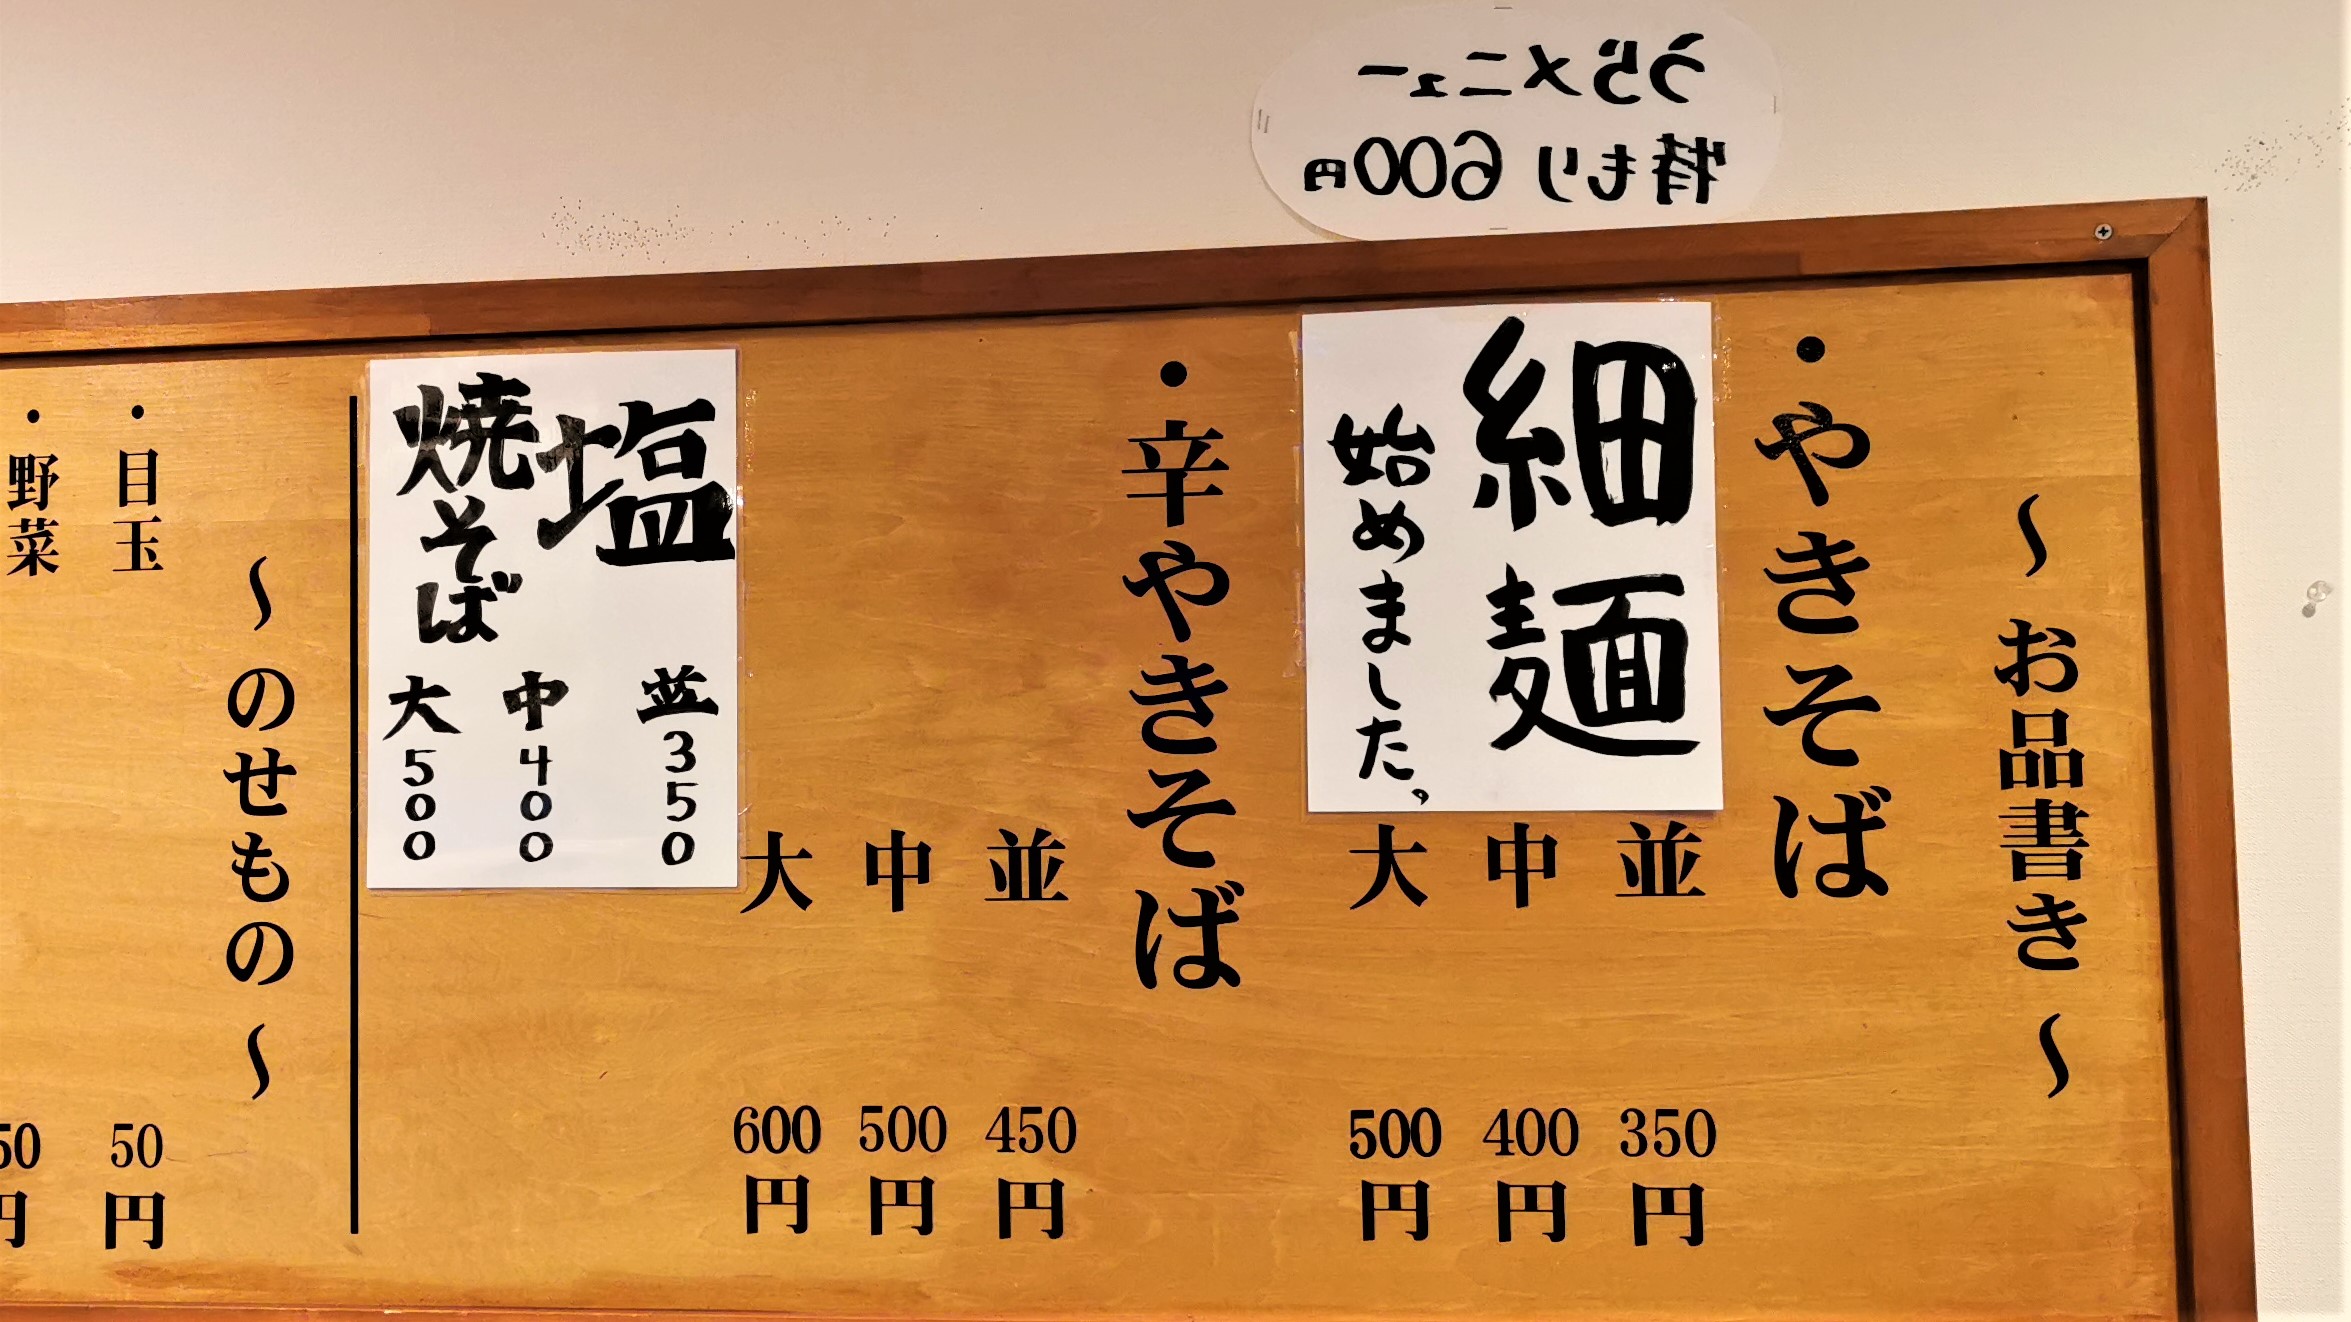 うらメニュー
特もり600円
〜お品書き〜
・やきそば
細麺
始めました。
並 350円
中 400円
大 500円
・辛やきそば
並 450円
中 500円
大 600円
塩
焼そば
並 350
中 400
大 500
〜のせもの〜
・目玉 50円
・野菜 50円